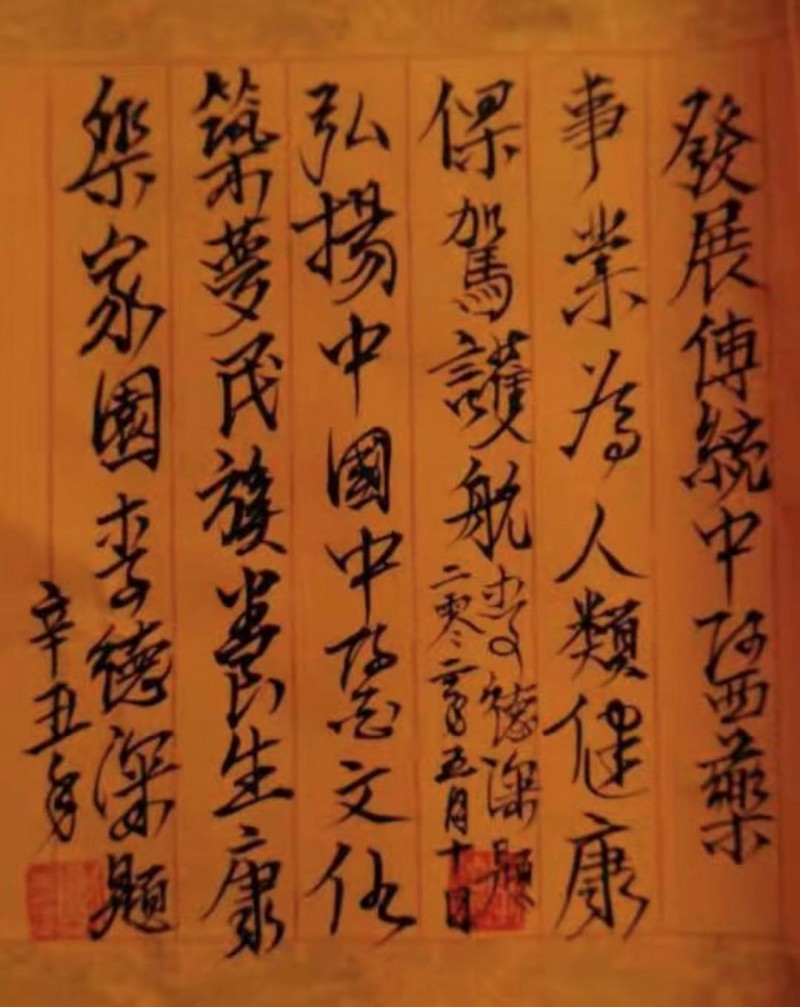 發展傳統中醫藥
事業為人類健康
保駕護航
李德深題
二零二二年五月十日
弘揚中國中醫文化
築夢民族養生康
樂家園李德深題
辛丑年